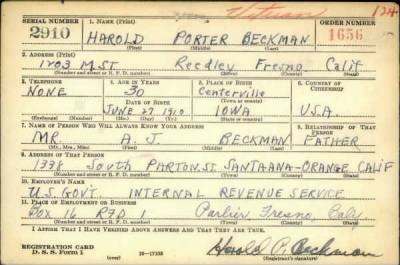 124
SERIAL NUMBER 1. NAME (Print) ORDER NUMBER
2910 HAROLD PORTER BECKMAN 1656
(First) (Middle) (Last)
2. ADDRESS (Print)
1203 M. ST Reedley Fresno Calif
(Number and street or R. F. D. number) (Town) (County) (State)
3. TELEPHONE 4. AGE IN YEARS 5. PLACE OF BIRTH 6. COUNTRY OF CITIZENSHIP
NONE 30 Centerville
DATE OF BIRTH (Town or county)
JUNE 27 1910 IOWA U.S.A.
(Exchange) (Number) (Mo.) (Day) (Yr.) (State or country)
7. NAME OF PERSON WHO WILL ALWAYS KNOW YOUR ADDRESS 8. RELATIONSHIP OF THAT PERSON
MR A. J. BECKMAN FATHER
(Mr., Mrs., Miss) (First) (Middle) (Last)
9. ADDRESS OF THAT PERSON
1338 South PARTON. ST. SANTA ANA - ORANGE, CALIF
(Number and street or R. F. D. number) (Town) (County) (State)
10. EMPLOYER'S NAME
U.S. GOVT. INTERNAL REVENUE SERVICE
11. PLACE OF EMPLOYMENT OR BUSINESS
Box 16 RFD 1 Parlier, Fresno, Caly.
(Number and street or R. F. D. number) (Town) (County) (State)
I AFFIRM THAT I HAVE VERIFIED ABOVE ANSWERS AND THAT THEY ARE TRUE.
REGISTRATION CARD
D. S. S. Form 1 16-17105 Harold P. Beckman
(Registrant's signature)